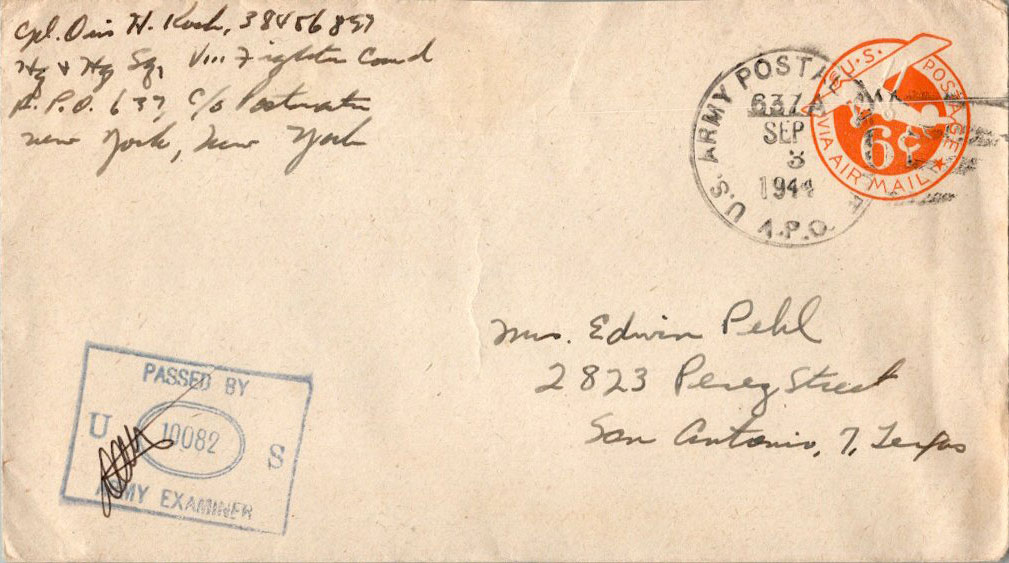 Cpl. Otis H. Koch, 38456897
Hq & Hq Sq, VIII Fighter Comd
A.P.O. 637, c/o Postmaster
New York, New York
U.S. ARMY POSTAL
637
SEP
3
1944
A.P.O.
U.S. POSTAGE
VIA AIR MAIL
6¢
Mrs. Edwin Pehl
2823 Perez Street
San Antonio, 7, Texas
PASSED BY
U 10082 S
ARMY EXAMINER